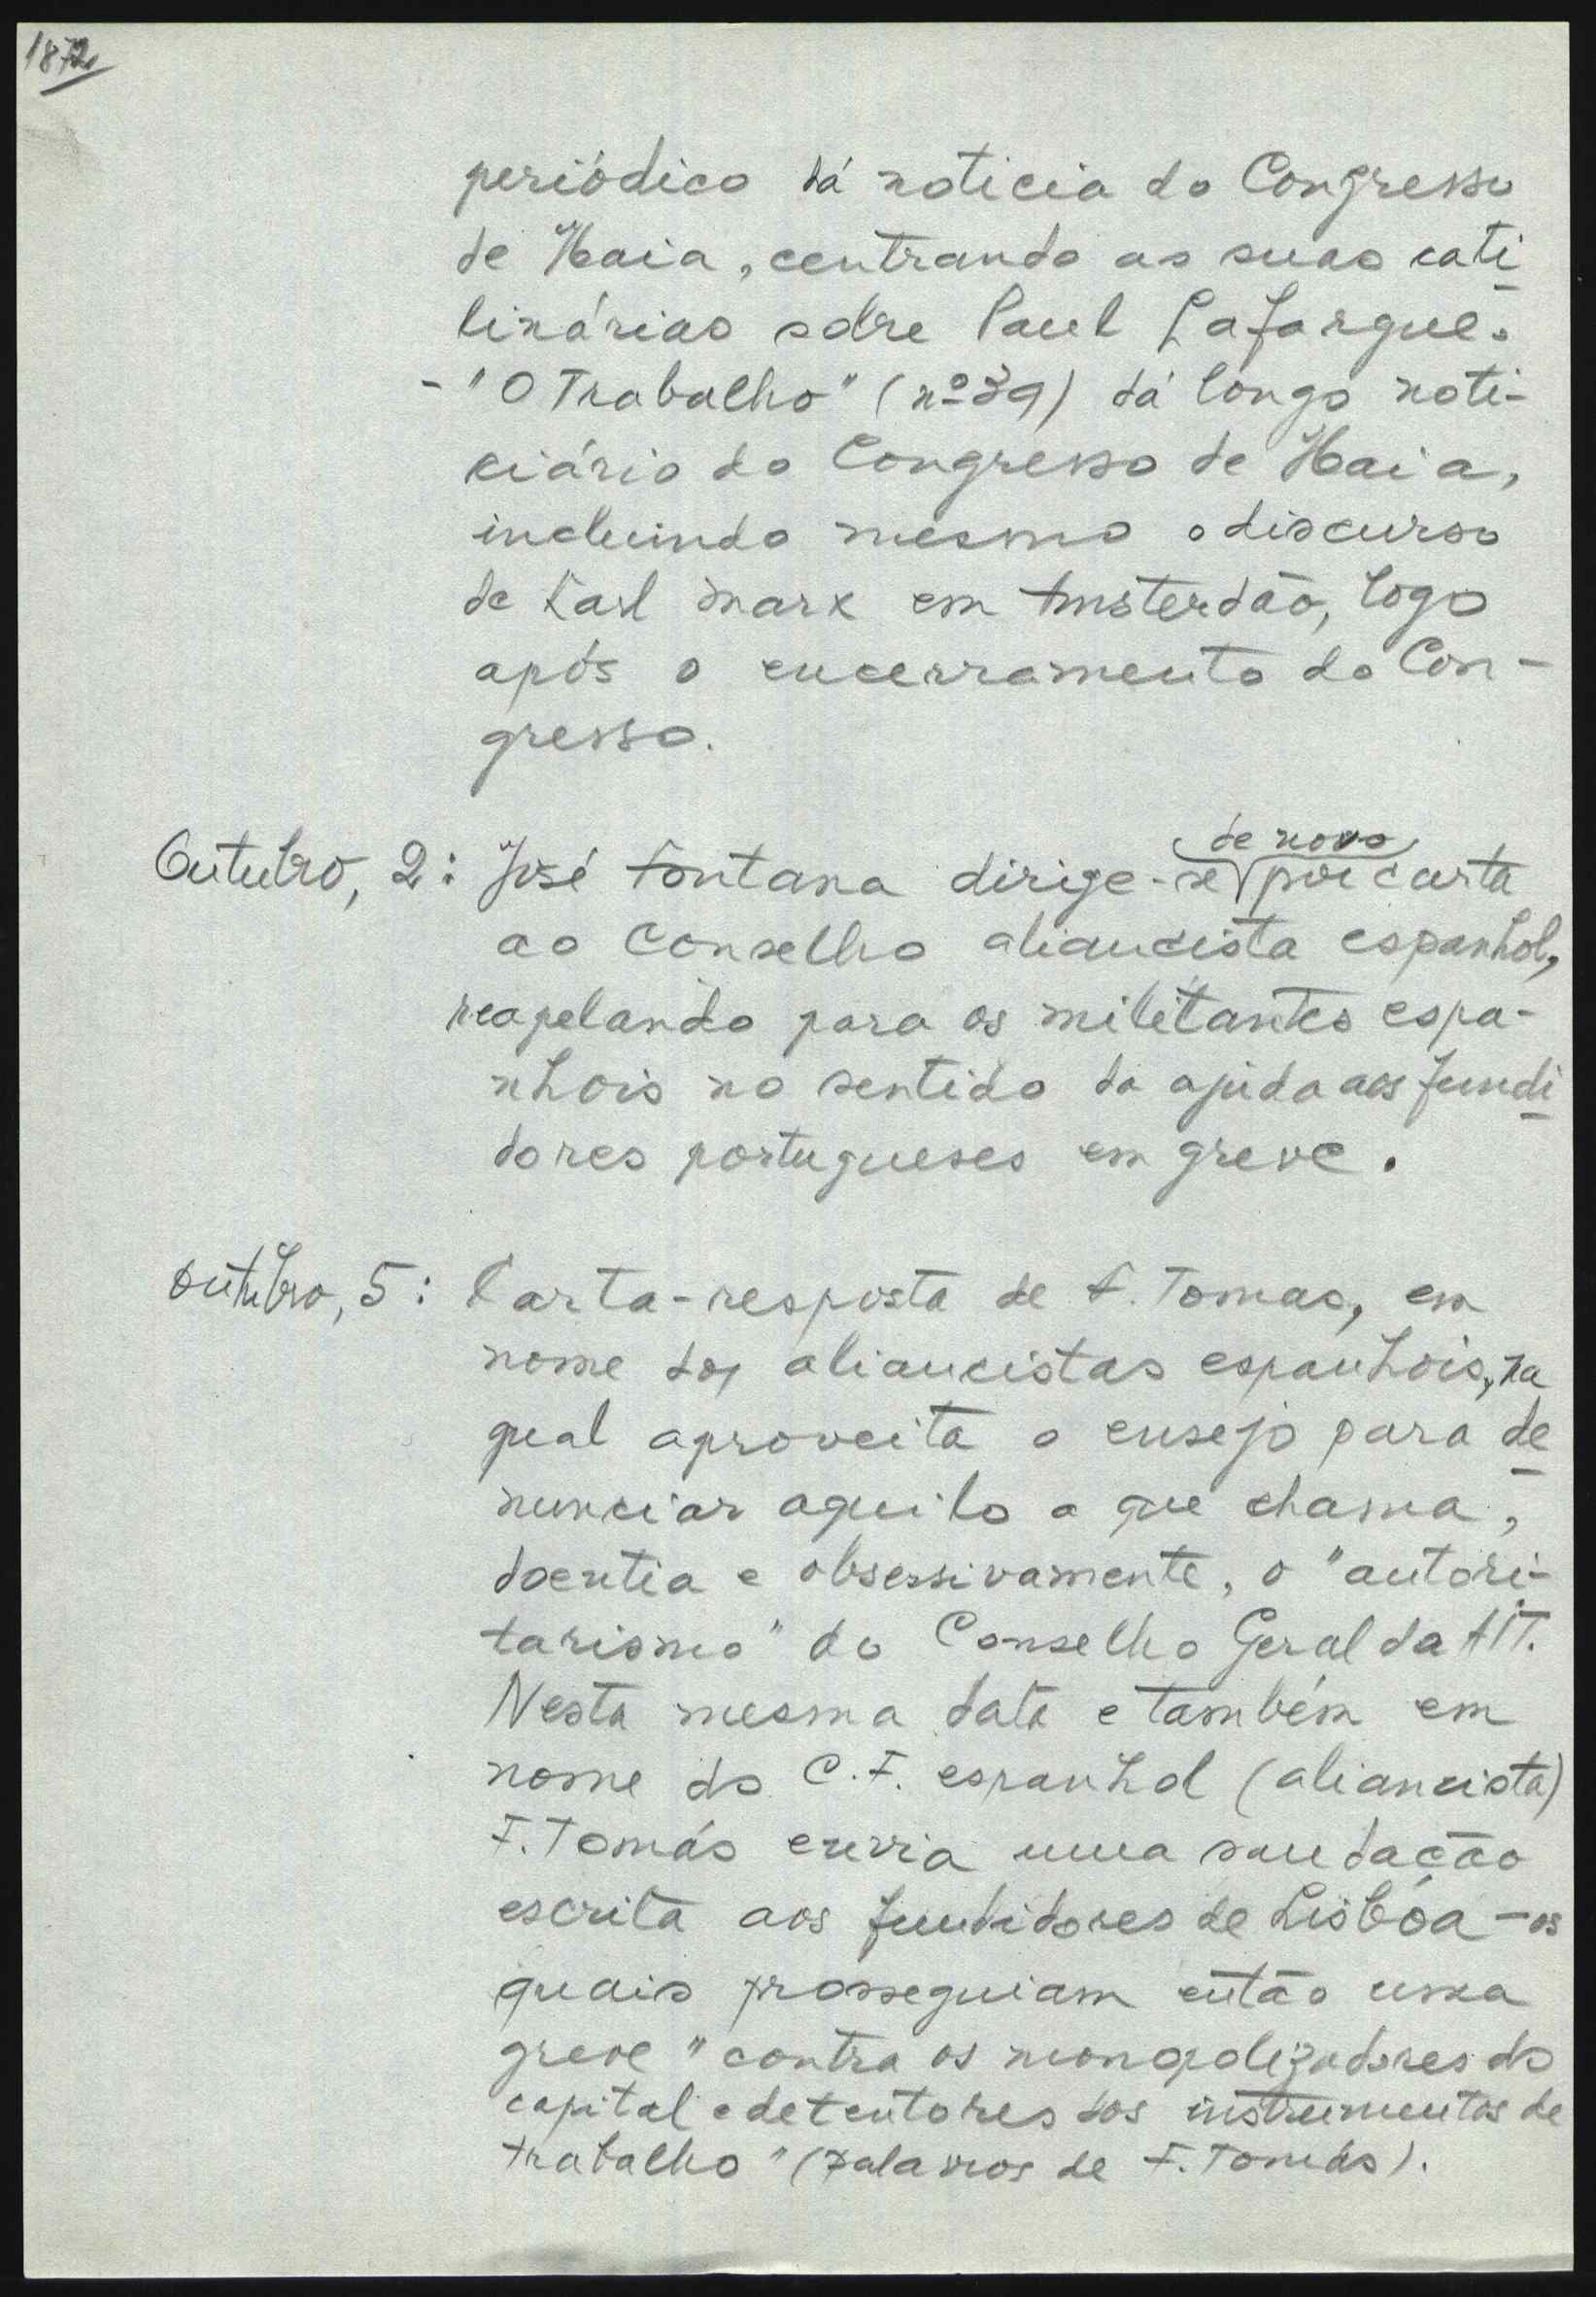 1872
periódico dá noticia do Congresso
de Haia, centrando as suas cati
linárias sôbre Paul Lafargue.
- "O Trabalho" (nº 39) dá longo noti-
ciário do Congresso de Haia,
incluindo mesmo o discurso
de Karl Marx em Amsterdão, logo
após o encerramento do Con-
gresso.
Outubro, 2: José Fontana dirige-se de novo por carta
ao Conselho aliancista espanhol,
reapelando para os militantes espa-
nhois no sentido da ajuda aos fundi
dores portugueses em greve.
Outubro, 5: Carta-resposta de F. Tomas, em
nome dos aliancistas espanhois, na
qual aproveita o ensejo para de
nunciar aquilo a que chama,
doentia e obsessivamente, o "autori-
tarismo" do Conselho Geral da AIT.
Nesta mesma data e também em
nome do C.F. espanhol (aliancista)
F. Tomás envia uma saudação
escrita aos fundidores de Lisbôa - os
quais prosseguiam então uma
greve "contra os monopolizadores do
capital e detentores dos instrumentos de
trabalho" (palavras de F. Tomás).